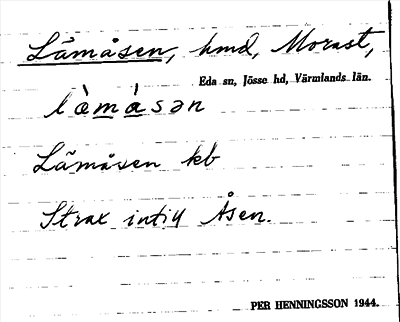 Låmåsen, hmd, Morast,
Eda sn, Jösse hd, Värmlands län.
l ὰ m ὰ s ə n
Låmåsen kb
Strax intill Åsen.
PER HENNINGSSON 1944.